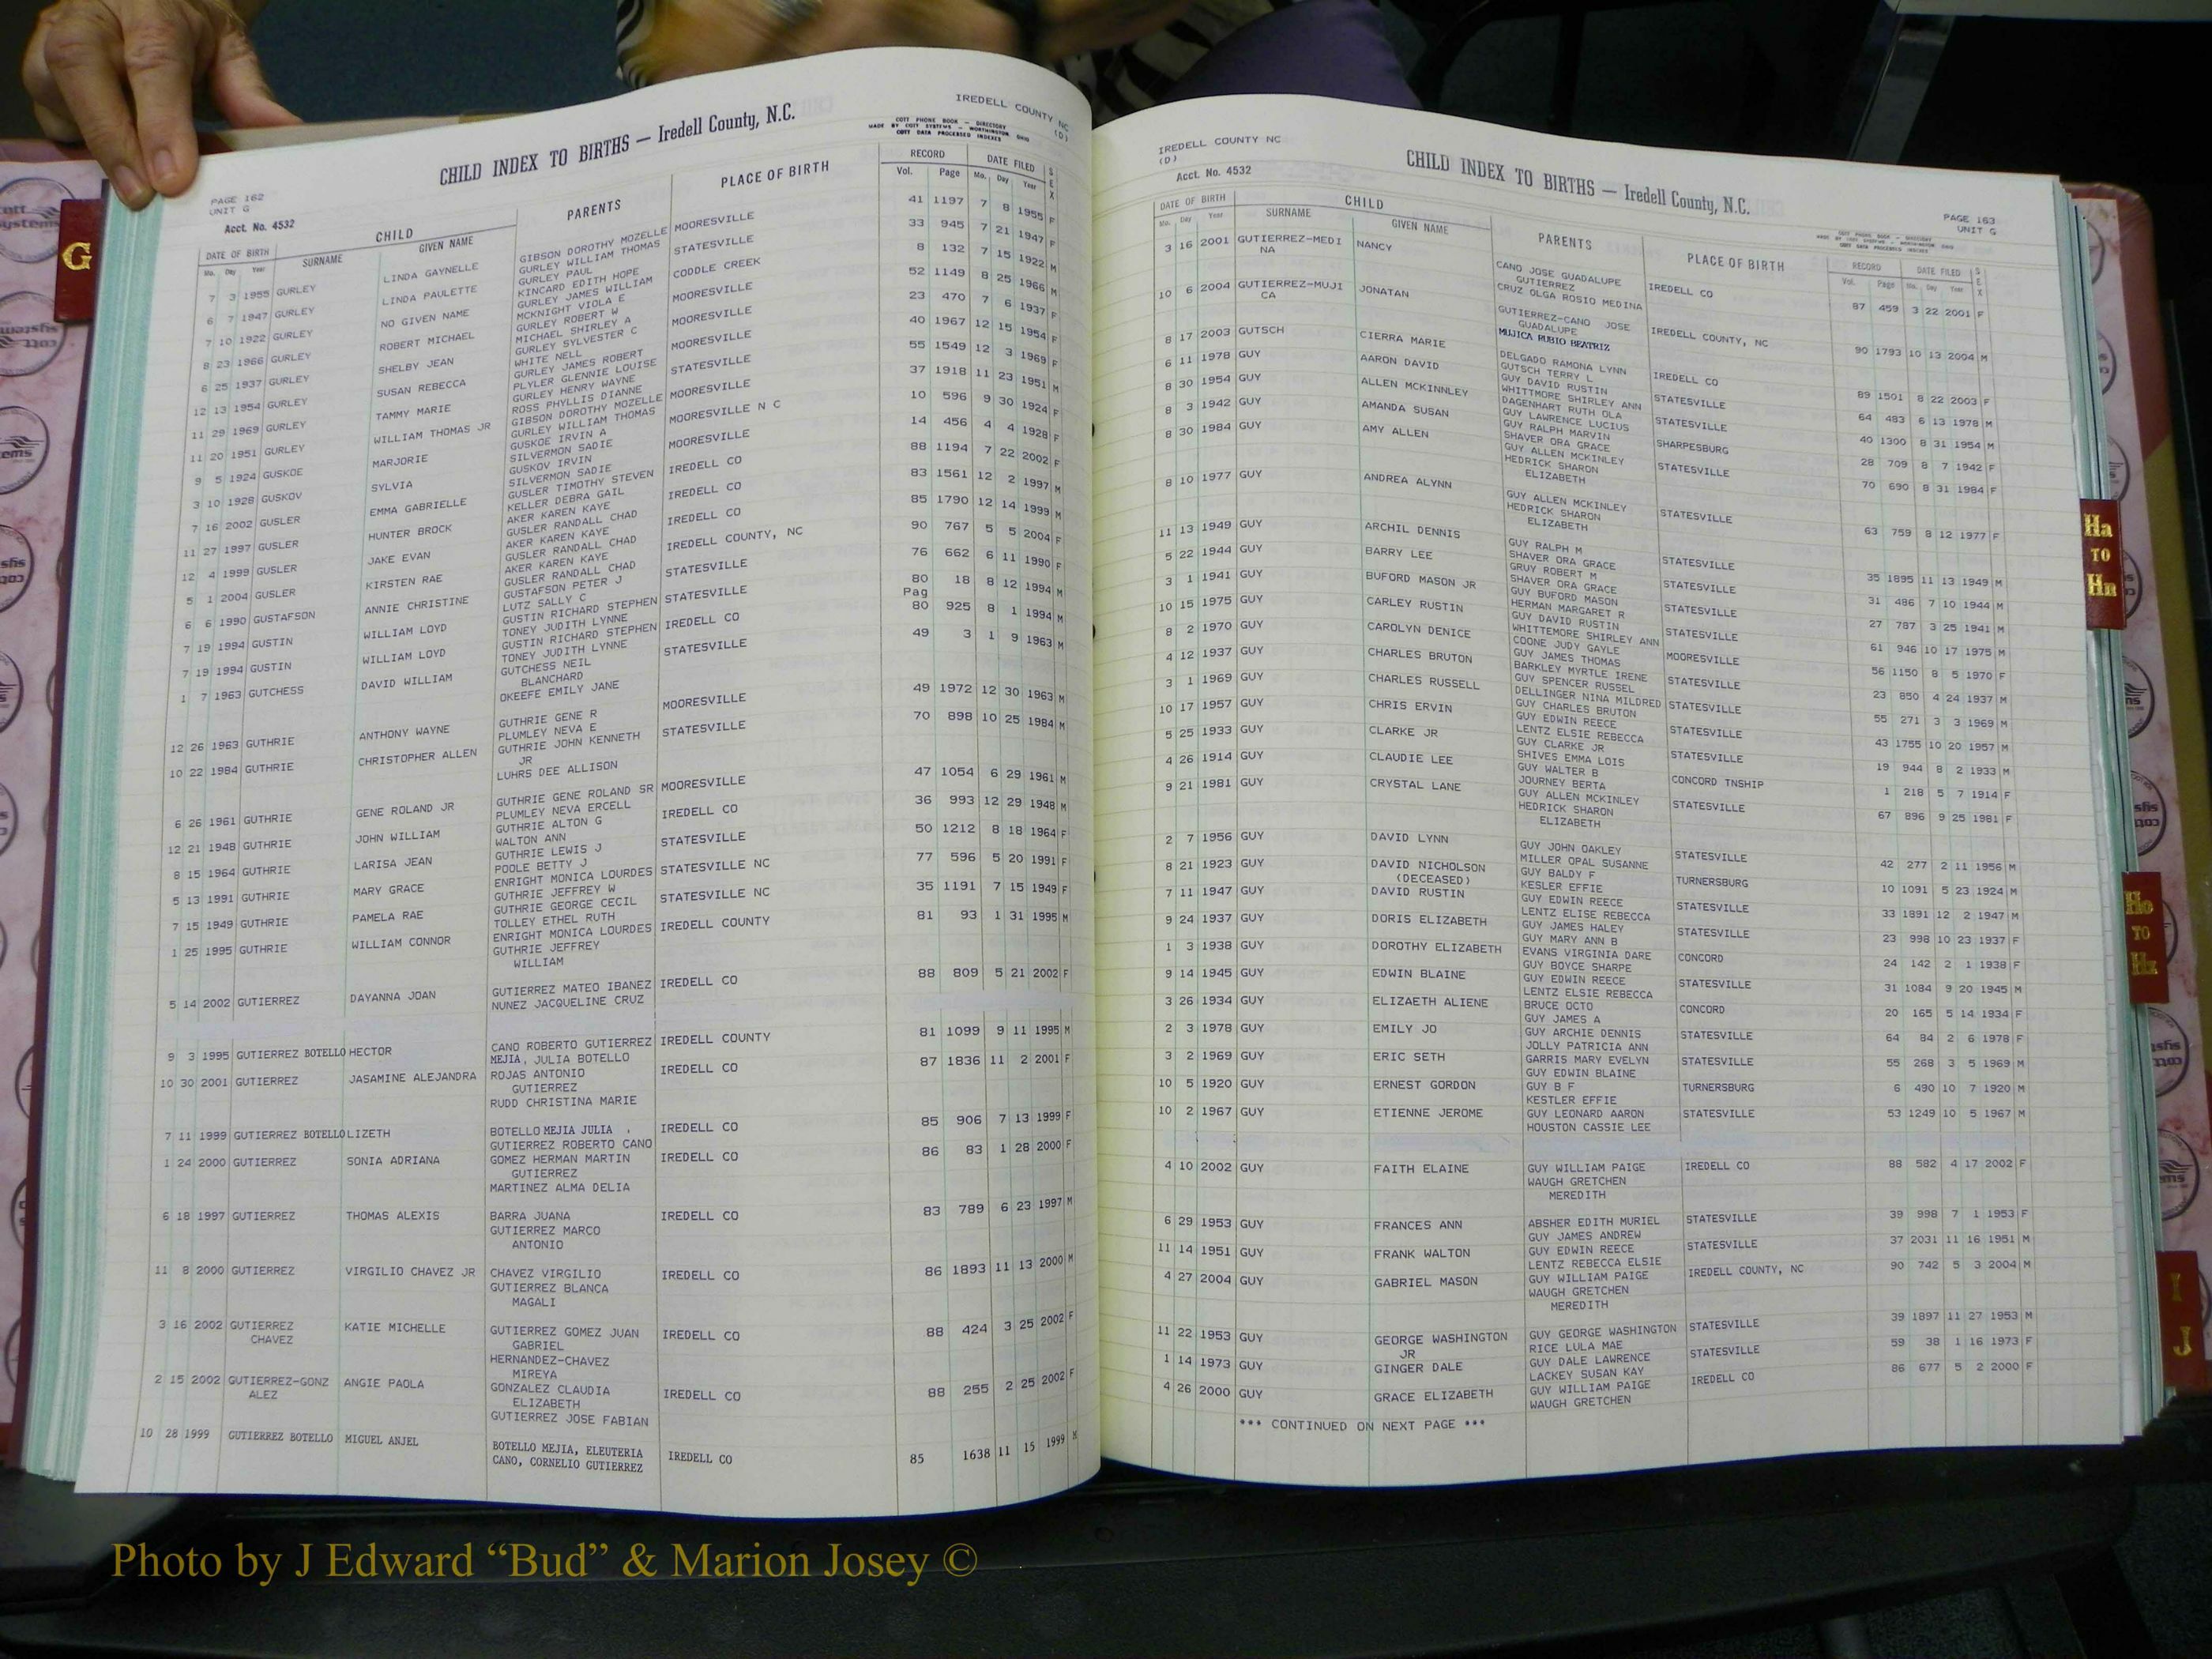 IREDELL COUNTY NC
(D)
CHILD INDEX TO BIRTHS — Iredell County, N.C.
COTT PHONE BOOK - DIRECTORY
MADE BY COTT SYSTEMS - WORTHINGTON OHIO
COTT DATA PROCESSED INDEXES
PAGE 162
UNIT G
Acct. No. 4532
DATE OF BIRTH CHILD PARENTS PLACE OF BIRTH RECORD DATE FILED SEX
Mo. Day Year SURNAME GIVEN NAME Vol. Page Mo. Day Year
7 3 1955 GURLEY LINDA GAYNELLE GIBSON DOROTHY MOZELLE MOORESVILLE 41 1197 7 8 1955 F
GURLEY WILLIAM THOMAS
6 7 1947 GURLEY LINDA PAULETTE GURLEY PAUL STATESVILLE 33 945 7 21 1947 F
KINCARD EDITH HOPE
7 10 1922 GURLEY NO GIVEN NAME GURLEY JAMES WILLIAM CODDLE CREEK 8 132 7 15 1922 M
MCKNIGHT VIOLA E
8 23 1966 GURLEY ROBERT MICHAEL GURLEY ROBERT W MOORESVILLE 52 1149 8 25 1966 M
MICHAEL SHIRLEY A
6 25 1937 GURLEY SHELBY JEAN GURLEY SYLVESTER C MOORESVILLE 23 470 7 6 1937 F
WHITE NELL
12 13 1954 GURLEY SUSAN REBECCA GURLEY JAMES ROBERT MOORESVILLE 40 1967 12 15 1954 F
PLYLER GLENNIE LOUISE
11 29 1969 GURLEY TAMMY MARIE GURLEY HENRY WAYNE STATESVILLE 55 1549 12 3 1969 F
ROSS PHYLLIS DIANNE
11 20 1951 GURLEY WILLIAM THOMAS JR GIBSON DOROTHY MOZELLE MOORESVILLE 37 1918 11 23 1951 M
GURLEY WILLIAM THOMAS
9 5 1924 GUSKOE MARJORIE GUSKOE IRVIN A MOORESVILLE N C 10 596 9 30 1924 F
SILVERMON SADIE
3 10 1928 GUSKOV SYLVIA GUSKOV IRVIN MOORESVILLE 14 456 4 4 1928 F
SILVERMON SADIE
7 16 2002 GUSLER EMMA GABRIELLE GUSLER TIMOTHY STEVEN IREDELL CO 88 1194 7 22 2002 F
KELLER DEBRA GAIL
11 27 1997 GUSLER HUNTER BROCK AKER KAREN KAYE IREDELL CO 83 1561 12 2 1997 M
GUSLER RANDALL CHAD
12 4 1999 GUSLER JAKE EVAN AKER KAREN KAYE IREDELL CO 85 1790 12 14 1999 M
GUSLER RANDALL CHAD
5 1 2004 GUSLER KIRSTEN RAE AKER KAREN KAYE IREDELL COUNTY, NC 90 767 5 5 2004 F
GUSLER RANDALL CHAD
6 6 1990 GUSTAFSON ANNIE CHRISTINE GUSTAFSON PETER J STATESVILLE 76 662 6 11 1990 F
LUTZ SALLY C
7 19 1994 GUSTIN WILLIAM LOYD GUSTIN RICHARD STEPHEN STATESVILLE 80 18 8 12 1994 M
TONEY JUDITH LYNNE Pag
7 19 1994 GUSTIN WILLIAM LOYD GUSTIN RICHARD STEPHEN IREDELL CO 80 925 8 1 1994 M
TONEY JUDITH LYNNE
1 7 1963 GUTCHESS DAVID WILLIAM GUTCHESS NEIL STATESVILLE 49 3 1 9 1963 M
BLANCHARD
OKEEFE EMILY JANE
12 26 1963 GUTHRIE ANTHONY WAYNE GUTHRIE GENE R MOORESVILLE 49 1972 12 30 1963 M
PLUMLEY NEVA E
10 22 1984 GUTHRIE CHRISTOPHER ALLEN GUTHRIE JOHN KENNETH STATESVILLE 70 898 10 25 1984 M
JR
LUHRS DEE ALLISON
6 26 1961 GUTHRIE GENE ROLAND JR GUTHRIE GENE ROLAND SR MOORESVILLE 47 1054 6 29 1961 M
PLUMLEY NEVA ERCELL
12 21 1948 GUTHRIE JOHN WILLIAM GUTHRIE ALTON G IREDELL CO 36 993 12 29 1948 M
WALTON ANN
8 15 1964 GUTHRIE LARISA JEAN GUTHRIE LEWIS J STATESVILLE 50 1212 8 18 1964 F
POOLE BETTY J
5 13 1991 GUTHRIE MARY GRACE ENRIGHT MONICA LOURDES STATESVILLE NC 77 596 5 20 1991 F
GUTHRIE JEFFREY W
7 15 1949 GUTHRIE PAMELA RAE GUTHRIE GEORGE CECIL STATESVILLE NC 35 1191 7 15 1949 F
TOLLEY ETHEL RUTH
1 25 1995 GUTHRIE WILLIAM CONNOR ENRIGHT MONICA LOURDES IREDELL COUNTY 81 93 1 31 1995 M
GUTHRIE JEFFREY
WILLIAM
5 14 2002 GUTIERREZ DAYANNA JOAN GUTIERREZ MATEO IBANEZ IREDELL CO 88 809 5 21 2002 F
NUNEZ JACQUELINE CRUZ
9 3 1995 GUTIERREZ BOTELLO HECTOR CANO ROBERTO GUTIERREZ IREDELL COUNTY 81 1099 9 11 1995 M
MEJIA, JULIA BOTELLO
10 30 2001 GUTIERREZ JASAMINE ALEJANDRA ROJAS ANTONIO IREDELL CO 87 1836 11 2 2001 F
GUTIERREZ
RUDD CHRISTINA MARIE
7 11 1999 GUTIERREZ BOTELLO LIZETH BOTELLO MEJIA JULIA , IREDELL CO 85 906 7 13 1999 F
GUTIERREZ ROBERTO CANO
1 24 2000 GUTIERREZ SONIA ADRIANA GOMEZ HERMAN MARTIN IREDELL CO 86 83 1 28 2000 F
GUTIERREZ
MARTINEZ ALMA DELIA
6 18 1997 GUTIERREZ THOMAS ALEXIS BARRA JUANA IREDELL CO 83 789 6 23 1997 M
GUTIERREZ MARCO
ANTONIO
11 8 2000 GUTIERREZ VIRGILIO CHAVEZ JR CHAVEZ VIRGILIO IREDELL CO 86 1893 11 13 2000 M
GUTIERREZ BLANCA
MAGALI
3 16 2002 GUTIERREZ KATIE MICHELLE GUTIERREZ GOMEZ JUAN IREDELL CO 88 424 3 25 2002 F
CHAVEZ GABRIEL
HERNANDEZ-CHAVEZ
MIREYA
2 15 2002 GUTIERREZ-GONZ ANGIE PAOLA GONZALEZ CLAUDIA IREDELL CO 88 255 2 25 2002 F
ALEZ ELIZABETH
GUTIERREZ JOSE FABIAN
10 28 1999 GUTIERREZ BOTELLO MIGUEL ANJEL BOTELLO MEJIA, ELEUTERIA IREDELL CO 85 1638 11 15 1999 M
CANO, CORNELIO GUTIERREZ
IREDELL COUNTY NC
(D)
Acct. No. 4532
CHILD INDEX TO BIRTHS — Iredell County, N.C.
PAGE 163
UNIT G
DATE OF BIRTH CHILD PARENTS PLACE OF BIRTH RECORD DATE FILED SEX
Mo. Day Year SURNAME GIVEN NAME Vol. Page Mo. Day Year
3 16 2001 GUTIERREZ-MEDI NANCY CANO JOSE GUADALUPE IREDELL CO 87 459 3 22 2001 F
NA GUTIERREZ
CRUZ OLGA ROSIO MEDINA
10 6 2004 GUTIERREZ-MUJI JONATAN GUTIERREZ-CANO JOSE IREDELL COUNTY, NC 90 1793 10 13 2004 M
CA GUADALUPE
MUJICA RUBIO BEATRIZ
8 17 2003 GUTSCH CIERRA MARIE DELGADO RAMONA LYNN IREDELL CO 89 1501 8 22 2003 F
GUTSCH TERRY L
6 11 1978 GUY AARON DAVID GUY DAVID RUSTIN STATESVILLE 64 483 6 13 1978 M
WHITTMORE SHIRLEY ANN
8 30 1954 GUY ALLEN MCKINNLEY DAGENHART RUTH OLA STATESVILLE 40 1300 8 31 1954 M
GUY LAWRENCE LUCIUS
8 3 1942 GUY AMANDA SUSAN GUY RALPH MARVIN SHARPESBURG 28 709 8 7 1942 F
SHAVER ORA GRACE
8 30 1984 GUY AMY ALLEN GUY ALLEN MCKINLEY STATESVILLE 70 690 8 31 1984 F
HEDRICK SHARON
ELIZABETH
8 10 1977 GUY ANDREA ALYNN GUY ALLEN MCKINLEY STATESVILLE 63 759 8 12 1977 F
HEDRICK SHARON
ELIZABETH
11 13 1949 GUY ARCHIL DENNIS GUY RALPH M STATESVILLE 35 1895 11 13 1949 M
SHAVER ORA GRACE
5 22 1944 GUY BARRY LEE GRUY ROBERT M STATESVILLE 31 486 7 10 1944 M
SHAVER ORA GRACE
3 1 1941 GUY BUFORD MASON JR GUY BUFORD MASON STATESVILLE 27 787 3 25 1941 M
HERMAN MARGARET R
10 15 1975 GUY CARLEY RUSTIN GUY DAVID RUSTIN STATESVILLE 61 946 10 17 1975 M
WHITTEMORE SHIRLEY ANN
8 2 1970 GUY CAROLYN DENICE COONE JUDY GAYLE MOORESVILLE 56 1150 8 5 1970 F
GUY JAMES THOMAS
4 12 1937 GUY CHARLES BRUTON BARKLEY MYRTLE IRENE STATESVILLE 23 850 4 24 1937 M
GUY SPENCER RUSSEL
3 1 1969 GUY CHARLES RUSSELL DELLINGER NINA MILDRED STATESVILLE 55 271 3 3 1969 M
GUY CHARLES BRUTON
10 17 1957 GUY CHRIS ERVIN GUY EDWIN REECE STATESVILLE 43 1755 10 20 1957 M
LENTZ ELSIE REBECCA
5 25 1933 GUY CLARKE JR GUY CLARKE JR STATESVILLE 19 944 8 2 1933 M
SHIVES EMMA LOIS
4 26 1914 GUY CLAUDIE LEE GUY WALTER B CONCORD TNSHIP 1 218 5 7 1914 F
JOURNEY BERTA
9 21 1981 GUY CRYSTAL LANE GUY ALLEN MCKINLEY STATESVILLE 67 896 9 25 1981 F
HEDRICK SHARON
ELIZABETH
2 7 1956 GUY DAVID LYNN GUY JOHN OAKLEY STATESVILLE 42 277 2 11 1956 M
MILLER OPAL SUSANNE
8 21 1923 GUY DAVID NICHOLSON GUY BALDY F TURNERSBURG 10 1091 5 23 1924 M
(DECEASED) KESLER EFFIE
7 11 1947 GUY DAVID RUSTIN GUY EDWIN REECE STATESVILLE 33 1891 12 2 1947 M
LENTZ ELISE REBECCA
9 24 1937 GUY DORIS ELIZABETH GUY JAMES HALEY STATESVILLE 23 998 10 23 1937 F
GUY MARY ANN B
1 3 1938 GUY DOROTHY ELIZABETH EVANS VIRGINIA DARE CONCORD 24 142 2 1 1938 F
GUY BOYCE SHARPE
9 14 1945 GUY EDWIN BLAINE GUY EDWIN REECE STATESVILLE 31 1084 9 20 1945 M
LENTZ ELSIE REBECCA
3 26 1934 GUY ELIZAETH ALIENE BRUCE OCTO CONCORD 20 165 5 14 1934 F
GUY JAMES A
2 3 1978 GUY EMILY JO GUY ARCHIE DENNIS STATESVILLE 64 84 2 6 1978 F
JOLLY PATRICIA ANN
3 2 1969 GUY ERIC SETH GARRIS MARY EVELYN STATESVILLE 55 268 3 5 1969 M
GUY EDWIN BLAINE
10 5 1920 GUY ERNEST GORDON GUY B F TURNERSBURG 6 490 10 7 1920 M
KESTLER EFFIE
10 2 1967 GUY ETIENNE JEROME GUY LEONARD AARON STATESVILLE 53 1249 10 5 1967 M
HOUSTON CASSIE LEE
4 10 2002 GUY FAITH ELAINE GUY WILLIAM PAIGE IREDELL CO 88 582 4 17 2002 F
WAUGH GRETCHEN
MEREDITH
6 29 1953 GUY FRANCES ANN ABSHER EDITH MURIEL STATESVILLE 39 998 7 1 1953 F
GUY JAMES ANDREW
11 14 1951 GUY FRANK WALTON GUY EDWIN REECE STATESVILLE 37 2031 11 16 1951 M
LENTZ REBECCA ELSIE
4 27 2004 GUY GABRIEL MASON GUY WILLIAM PAIGE IREDELL COUNTY, NC 90 742 5 3 2004 M
WAUGH GRETCHEN
MEREDITH
11 22 1953 GUY GEORGE WASHINGTON GUY GEORGE WASHINGTON STATESVILLE 39 1897 11 27 1953 M
JR RICE LULA MAE
1 14 1973 GUY GINGER DALE GUY DALE LAWRENCE STATESVILLE 59 38 1 16 1973 F
LACKEY SUSAN KAY
4 26 2000 GUY GRACE ELIZABETH GUY WILLIAM PAIGE IREDELL CO 86 677 5 2 2000 F
WAUGH GRETCHEN
*** CONTINUED ON NEXT PAGE ***
G
Ha
TO
Hn
Ho
TO
Hz
I
J
Photo by J Edward “Bud” & Marion Josey ©